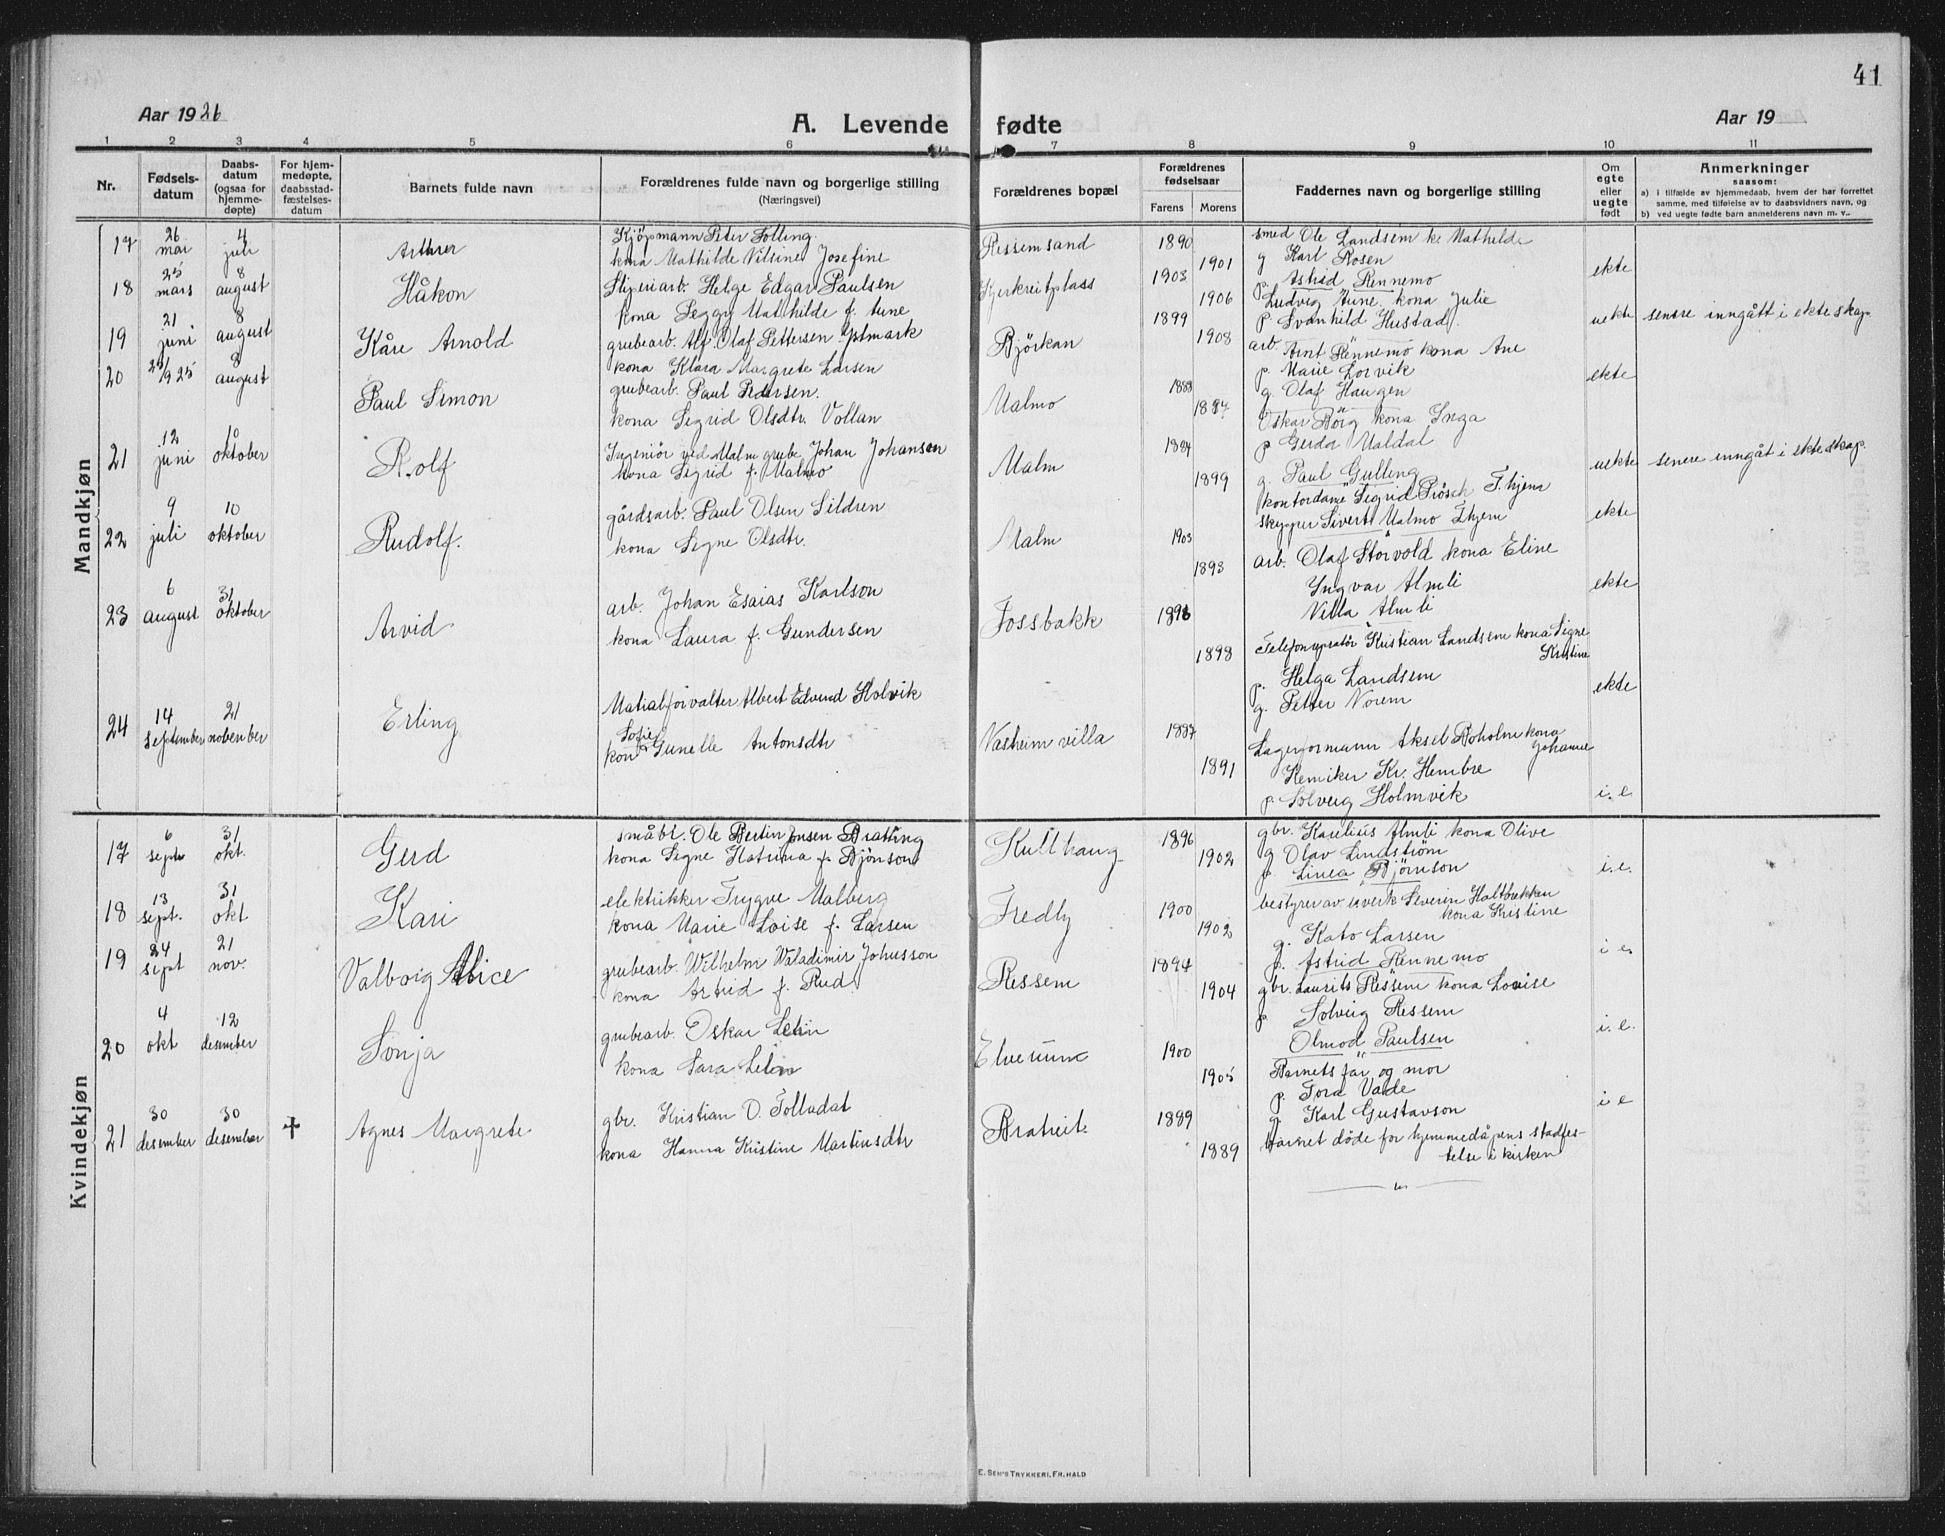 41
Aar 1926
A. Levende fødte
Aar 19
1 2 3 4 5 6 7 8 9 10 11
Nr.
Fødsels-
datum
Daabs-
datum
(ogsaa for
hjemme-
døpte)
For hjem-
medøpte,
daabsstad-
fæstelses-
datum
Barnets fulde navn
Forældrenes fulde navn og borgerlige stilling
(Næringsvei)
Forældrenes bopæl
Forældrenes
fødselsaar
Farens Morens
Faddernes navn og borgerlige stilling
Om
egte
eller
uegte
født
Anmerkninger
saasom:
a) i tilfælde av hjemmedaab, hvem der har forrettet
samme, med tilføielse av to daabsvidners navn, og
b) ved uegte fødte barn anmelderens navn m. v..
Mandkjøn
17 26 mai 4 juli Arthur
Kjøpmann Peter Solling
kona Mathilde Nilsine Josefine
Ressemsand 1890 1901
smed Ole Landsem ke Mathilde
g Karl Rosen
p. Astrid Rennemo
ekte
18 25 mars 8 august Håkon
Stigeriarb. Helge Edgar Paulsen
kona Peggy Mathilde f. Aune
1903 1906
Ludvig Aune. kona Julie
p Svanhild Hustad.
uekte senere inngått i ekteskap.
19 21 juni 8 august Kåre Arnold
grubearb. Alf Olaf Pettersen
kona Klara Margrete Larsen
Björkan 1899 1908
arb. Arnt Rennemo kona Ane
p. Marie Lorvik
g. Olaf Haugen
ekte
20 25/9 25 8 august Paul Simon
grubearb. Paul Pedersen.
kona Sigrid Olsdtr. Vollan
Malmo 1888 1887
Oskar Börg kona Inga
p Gerda Maldal
g. Paul Gulling
uekte senere inngåt i ekteskap.
21 12 juni 10 oktober Rolf
Ingeniör ved Malm grube Johan Johansen
kona Sigrid f. Malmo
Malm 1894 1899
kontordame Sigrid Prösch T.hjem
skypper Sivert Malmo T.hjem
ekte
22 9 juli 10 oktober Rudolf.
gårdsarb. Paul Olsen Sildren
kona Signe Olsdtr.
Malm 1903 1893
arb. Olaf Storvold kona Eline
Yngvar Almli
Villa Almli
ekte
23 6 august 31 oktober Arvid
arb. Johan Esaias Karlson
kona Laura f. Gundersen
Fossbakk 1898 1898
Kristian Landsem kona Signe
Kristine
p. Helga Landsem
g. Petter Norem
ekte
24 14 september 21 november Erling
Albert Edvind Holvik
kona Sofie Gunelle Antonsdtr
Vasheim villa 1887 1891
Lagerformann Aksel Boholm kona
Johanne
Kemiker Kr. Hembre
p Solveig Holmvik
i. e.
Kvindekjøn
17 6 sept 31 okt. Gerd
småbr. Ole Bertin Jensen Brattung
kona Signe Katrina f. Bjönson
Kullhaug 1896 1902
gbr. Karelius Almli kona Olive
g Olav Lindstrøm
p. Linea Bjørnson
i. e.
18 13 sept. 31 okt Kari
elektrikker Trygve Malberg
kona Marie Loise f. Larsen
Fredly 1900 1902
bestyrer av uverk Severin Holtbekken
kona Kristine
g. Kato Larsen
p. Astrid Rennemo
i e.
19 24 sept 21 nov. Valborg Alice
grubearb. Wilhelm Waladimir Johnsson
kona Astrid f. Rud
Ressem 1894 1904
gbr. Laurits Ressem kona Lovise
p Solveig Ressem
Olmod Paulsen
i. e.
20 4 okt 12 desember Sonja
grubearb. Oskar Lelin
kona Sara Lelin
Elverum 1900 1905
Barnets far og mor
p. Tora Valde
g. Karl Gustavson
i e
21 30 desember 30 desember † Agnes Margrete
gbr. Kristian O. Folladal
kona Hanna Kristine Martinsdtr
Bratreit 1889 1889
barnet döde for hjemmedåpens stadfes-
telse i kirken
E. SEM'S TRYKKERI, FR.HALD